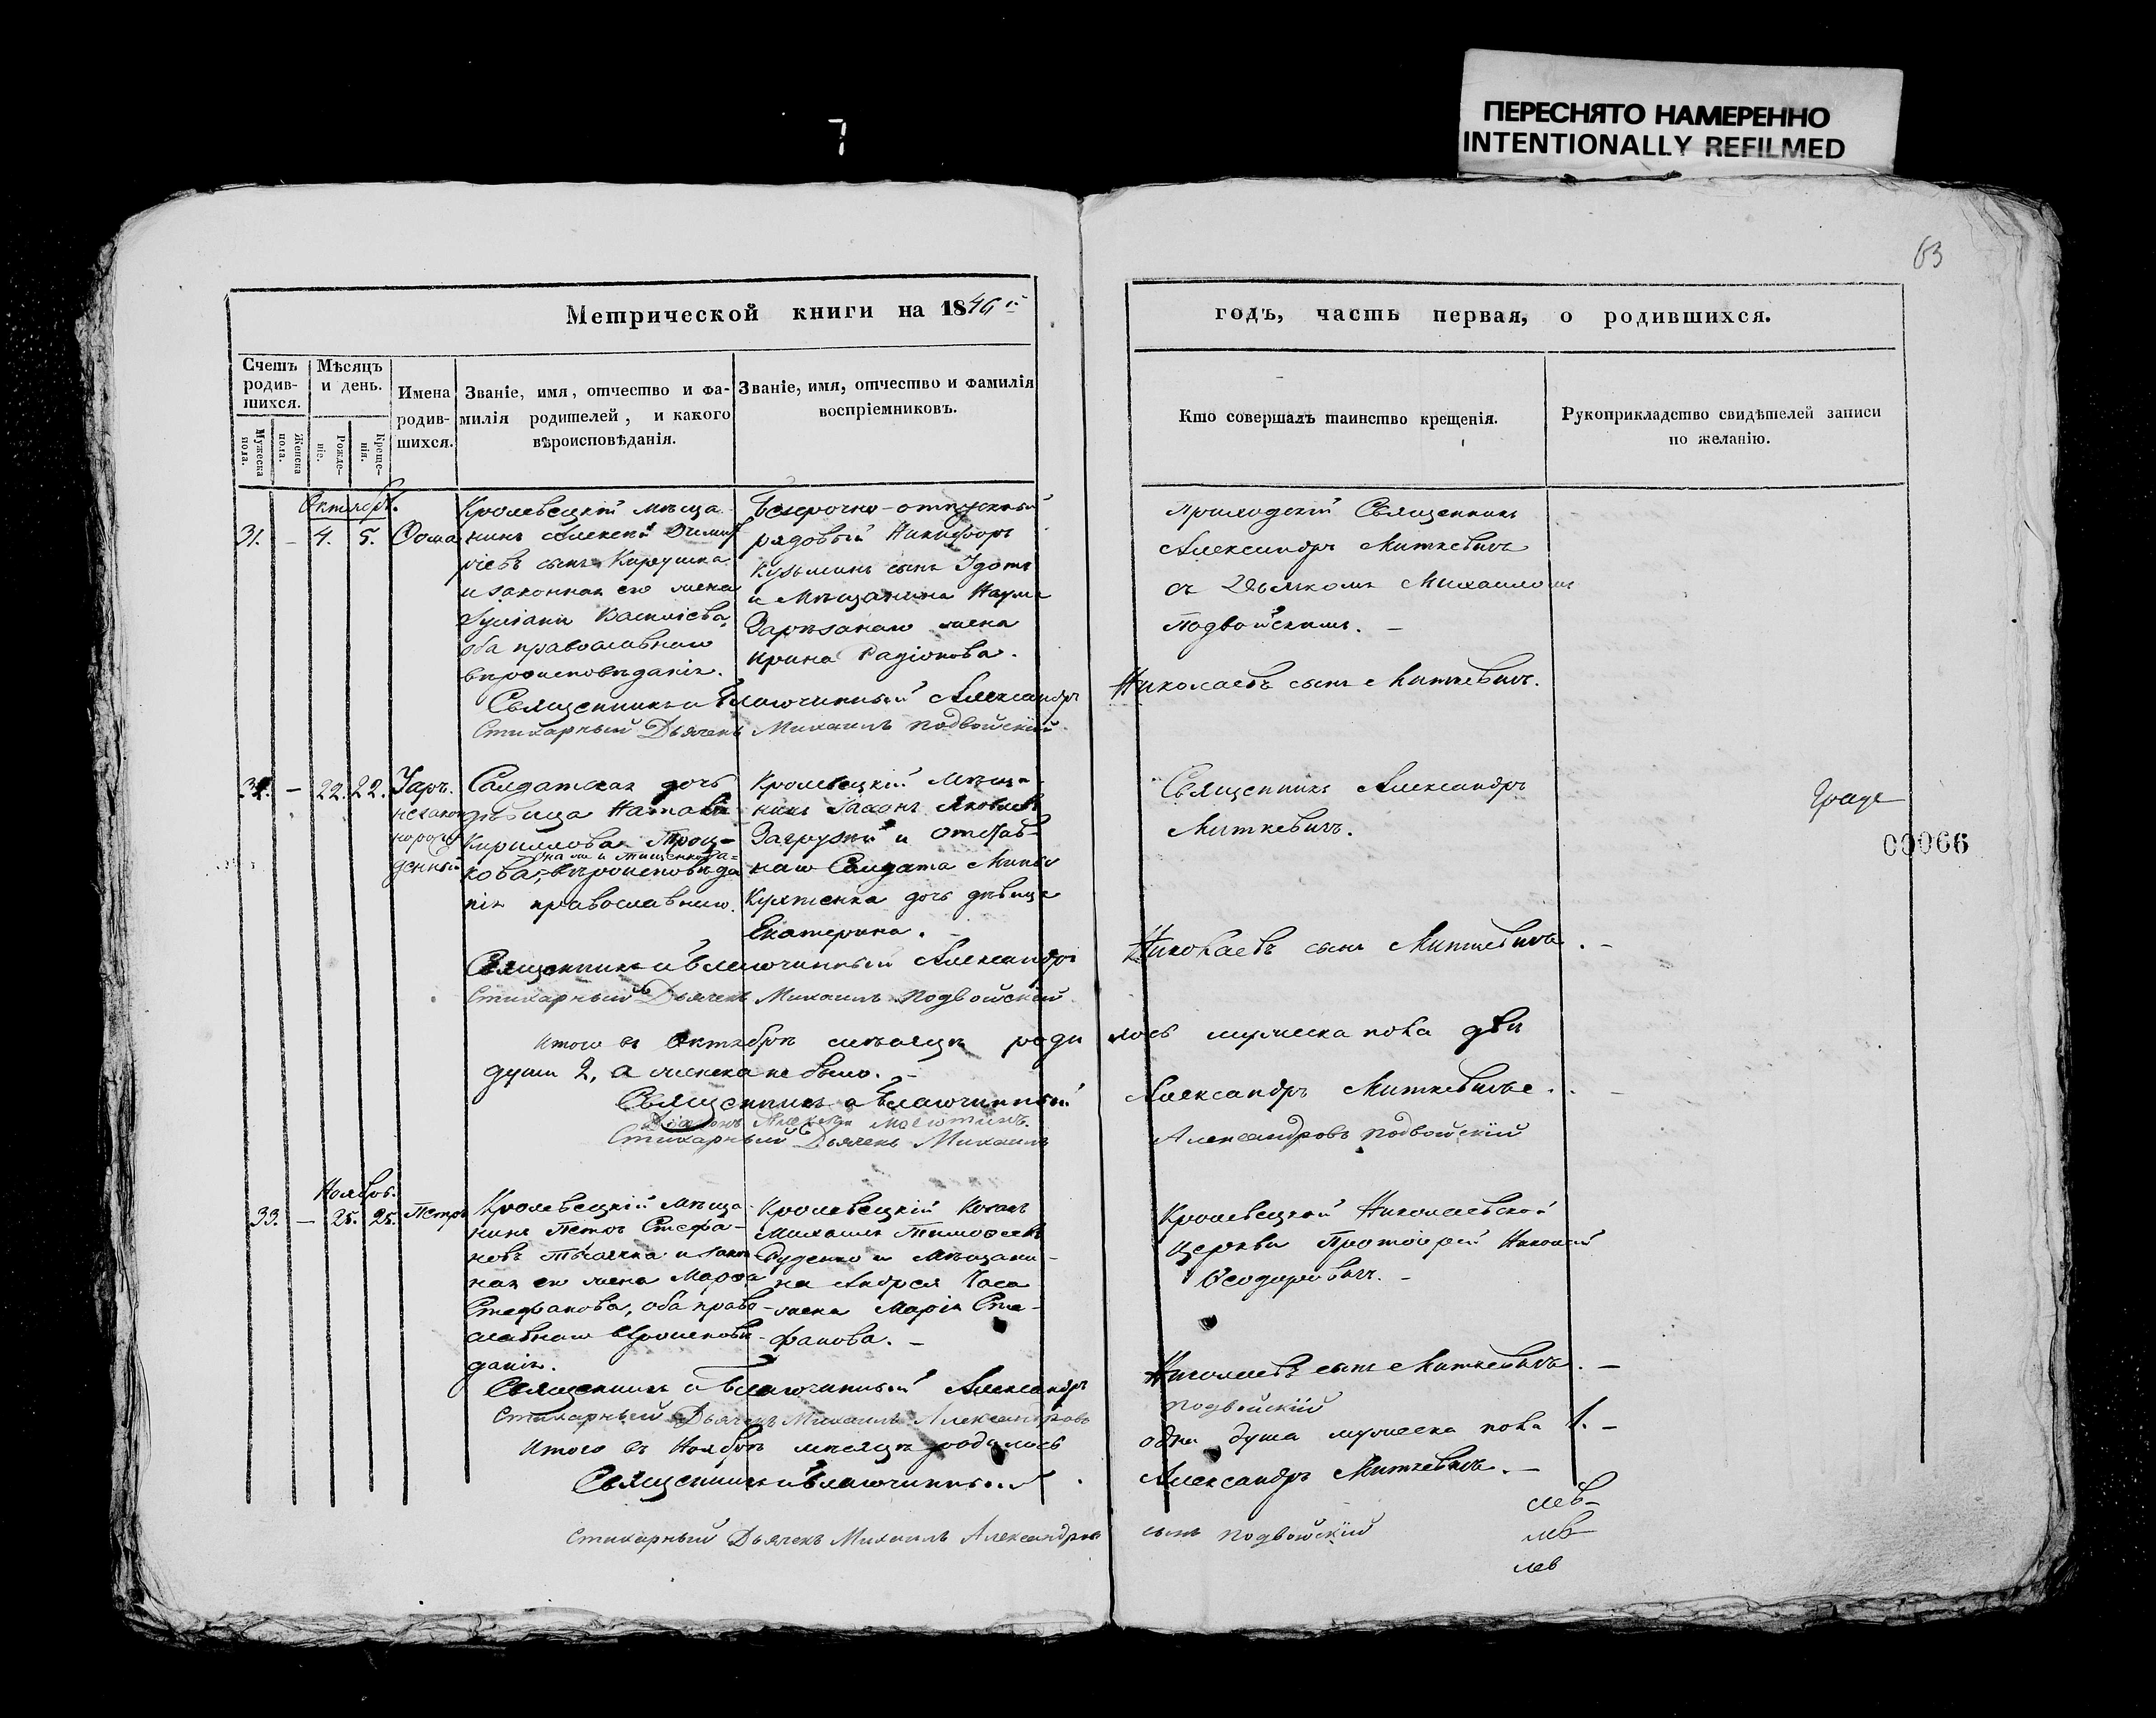 7
ПЕРЕСНЯТО НАМЕРЕННО
INTENTIONALLY REFILMED
63
Метрической книги на 1846й
годъ, часть первая, о родившихся.
Счетъ родив-шихся.
Мужеска пола.
Женска пола.
Мѣсяцъ и день.
Рожде-ніе.
Креще-нія.
Имена родив-шихся.
Званіе, имя, отчество и фа-
милія родителей, и какого
вѣроисповѣданія.
Званіе, имя, отчество и фамилія
воспріемниковъ.
Кто совершалъ таинство крещенія.
Рукоприкладство свидѣтелей записи
по желанію.
Октябрь.
31. – 4. 5. Ѳома
Кролевецкій мѣща-
нинъ Алексѣй
сынъ
и законная его жена
Василіева,
оба православнаго
вѣроисповѣданія.
Безсрочно-отпускный
рядовый Никифоръ
Кузьминъ сынъ
и мѣщанина Наума
жена
Ирина Радіонова.
Приходскій Священникъ
Александръ Миткевичъ
съ Дьякомъ Михаиломъ
Подвойскимъ. –
Священникъ и Благочинный Александръ Николаевъ сынъ Миткевичъ.
Стихарный Дьячекъ Михаилъ Подвойскій
32. – 22. 22.
незакон
норож
денный
Солдатская дочь
дѣвица Наталія
Кириллова
кова, вѣроисповѣда
нія православнаго.
Кролевецкій мѣща-
нинъ Яковлевъ
и отстав-
наго Солдата
дочь дѣвица
Екатерина. –
Священникъ Александръ
Миткевичъ.
00066
Священникъ и Благочинный Александръ Николаевъ сынъ Миткевичъ. –
Стихарный Дьячекъ Михаилъ Подвойскій
Итого въ Октябрѣ мѣсяцѣ родилось мужеска пола двѣ
души 2, а женска не было. –
Священникъ и Благочинный Александръ Миткевичъ.
Діаконъ Алексѣй
Стихарный Дьячекъ Михаилъ Александровъ Подвойскій
Ноябрь.
33. – 25. 25. Петръ
Кролевецкій мѣща-
нинъ Петръ Стефа-
новъ и закон
ная его жена Марѳа
Стефанова, оба право-
славнаго вѣроисповѣ-
данія.
Кролевецкій Козакъ
Михаилъ Тимоѳеевъ
Руденко и мѣщани-
на Андрея
жена Марія Сте-
фанова. –
Кролевецкой Николаевской
церкви Протоіерей Николай
Ѳеодоровичъ. –
Священникъ и Благочинный Александръ Николаевъ сынъ Миткевичъ. –
Стихарный Дьячекъ Михаилъ Александровъ Подвойскій
Итого въ Ноябрѣ мѣсяцѣ родилось одна душа мужеска пола 1. –
Священникъ и Благочинный Александръ Миткевичъ. –
Стихарный Дьячекъ Михаилъ Александровъ сынъ Подвойскій